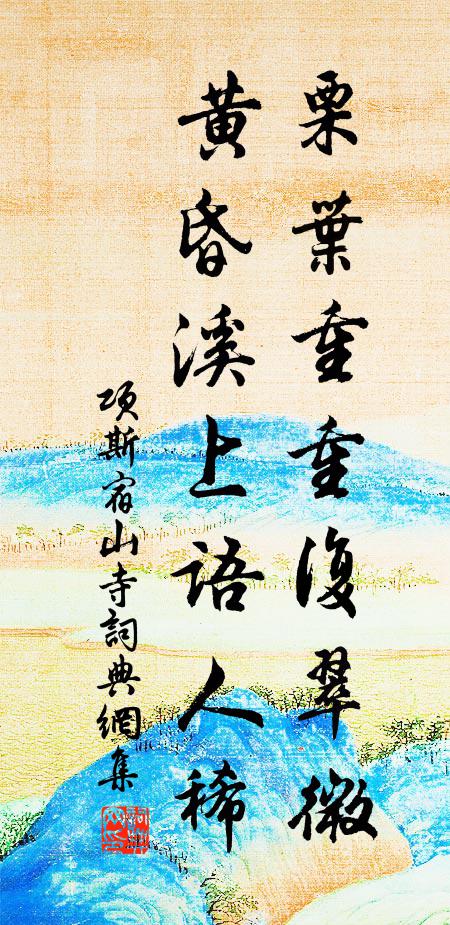 栗葉重重復翠微
黃昏溪上语人稀
項斯宿山寺詞典網集